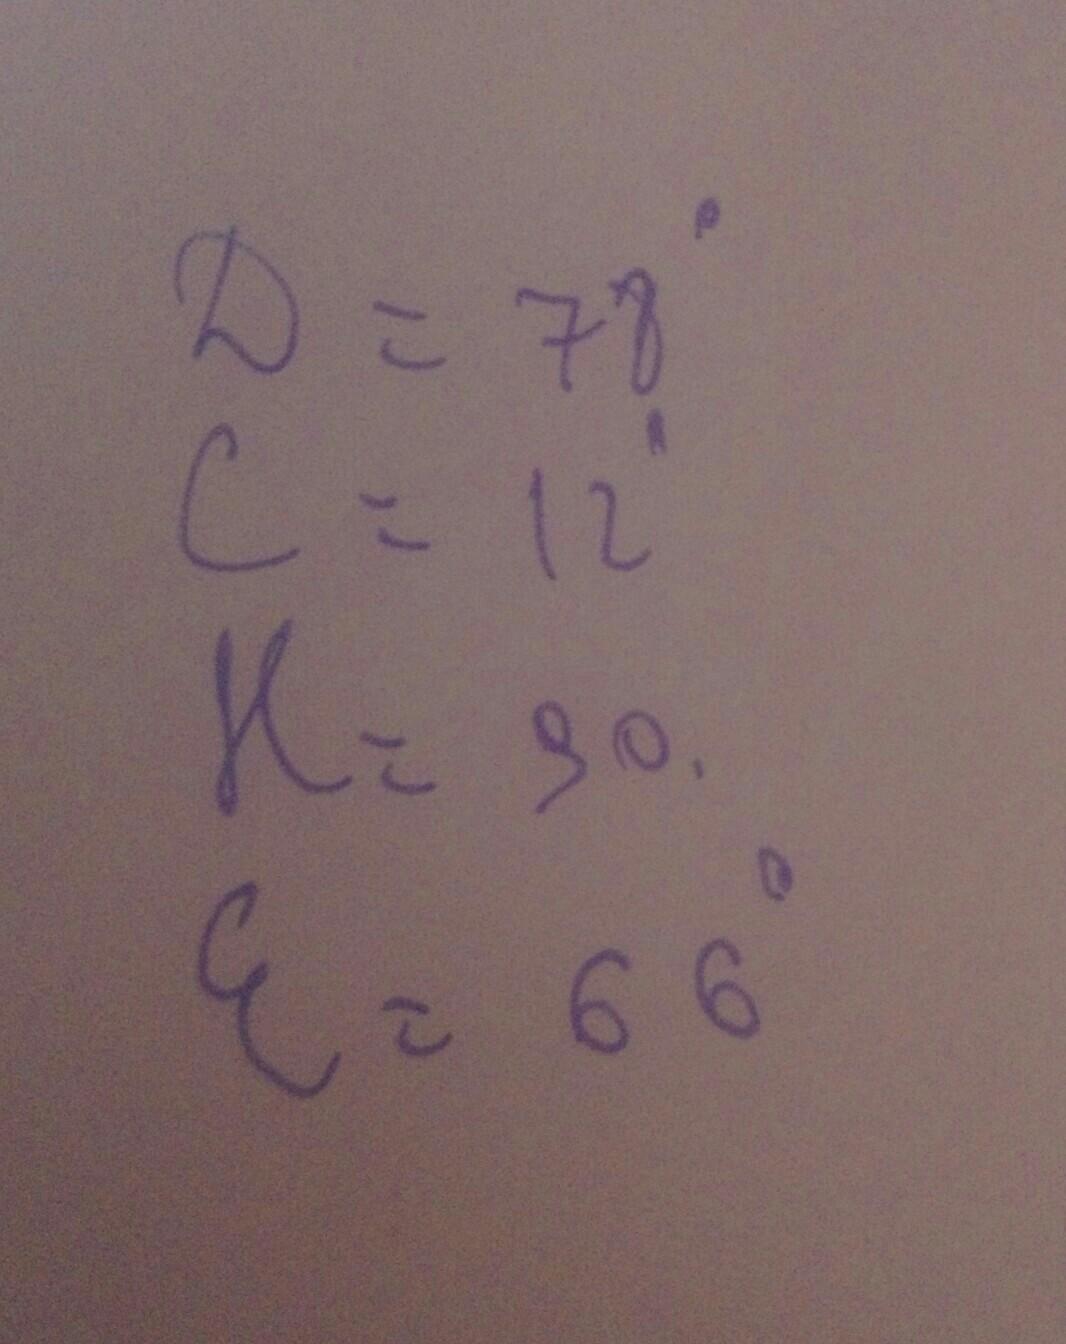 D = 78°
C = 12°
K = 90.
E = 66°